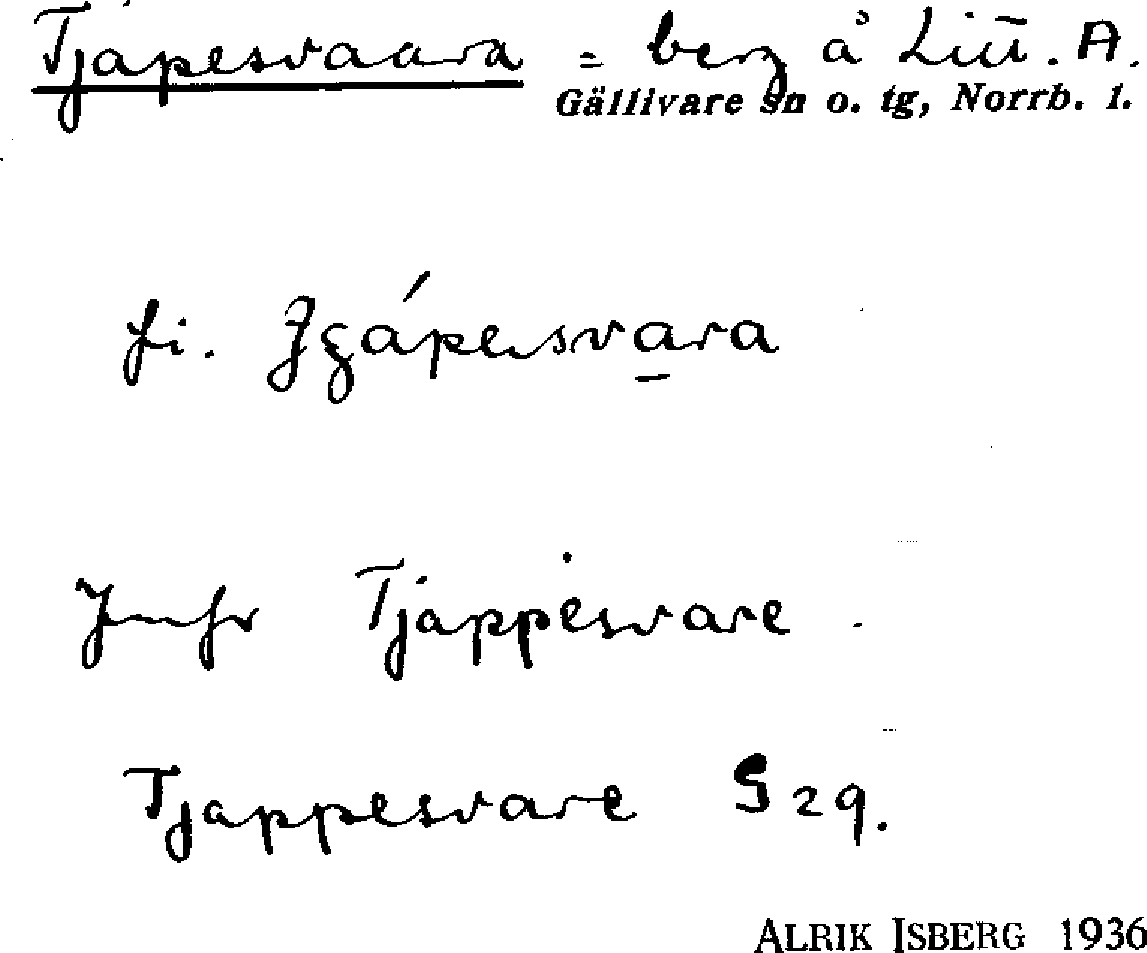 Tjåpesvaara = berg å Litt. A.
Gällivare sn o. tg, Norrb. l.
fi. Jgápesvara
Jmfr Tjappesvare.
Tjappesvare G 29.
ALRIK ISBERG 1936